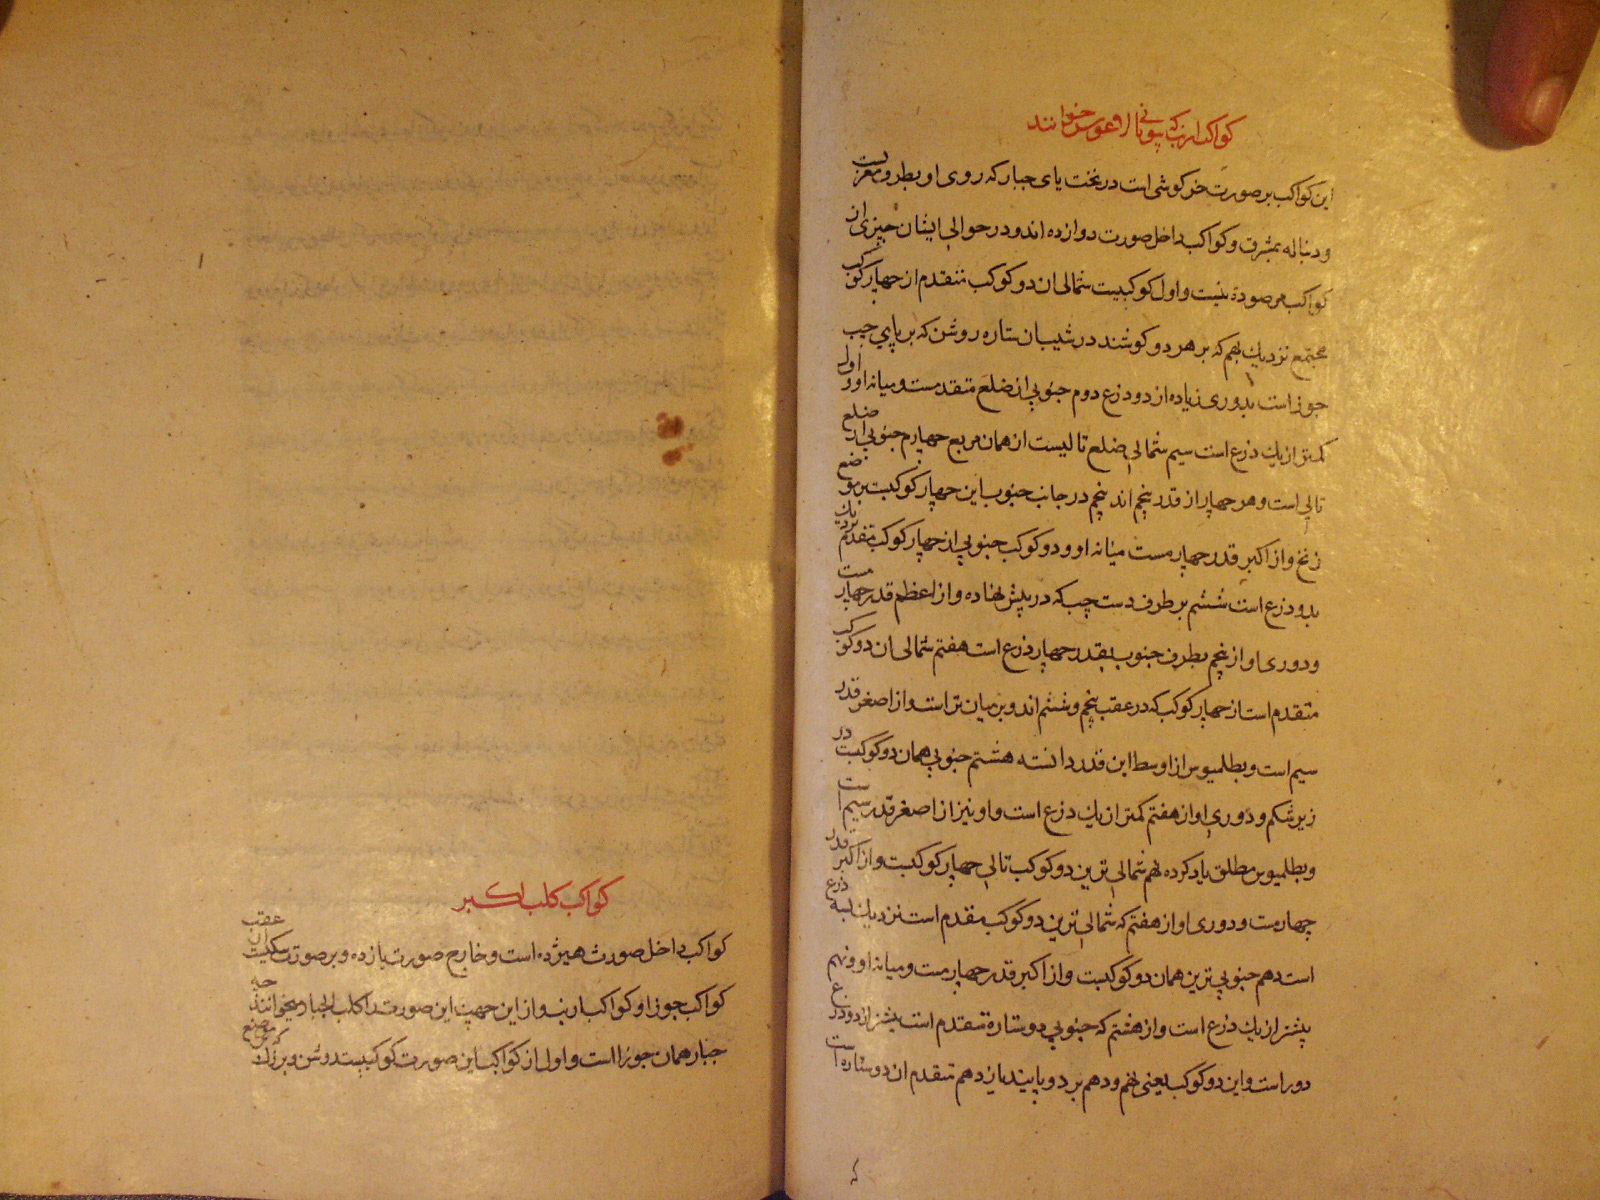 کواکب ارنب که یونانی لاغوس خوانند
این کواکب بر صورت خرکوشی است در تحت پای جبار که روی او بطرف مغربست
و دنباله بمشرق و کواکب داخل صورت دوازده اند و در حوالی ایشان چیزی از
کواکب مرصوده نیست و اول کوکبیت شمالی ان دو کوکب متقدم از چهار کوکب
مجتمع نزدیك بهم که بر هر دو کوشند در شیب ان ستاره روشن که بر پای چپ
جوزاست بدوری زیاده از دو ذرع دوم جنوبی از ضلع متقدمست و میانه او و اول
کمتر از یك ذرع است سیم شمالی ضلع تالیست از همان مربع چهارم جنوبی از ضلع
تالی است و هر چهار از قدر پنجم اند پنجم در جانب جنوب این چهار کوکبست بر موضع
زنخ و از اکبر قدر چهارمست میانه او و دو کوکب جنوبی از چهار کوکب متقدم نزدیك
بدو ذرع است ششم بر طرف دست چپ که در پیش نهاده و از اعظم قدر چهارمست
و دوری او از پنجم بطرف جنوب بقدر چهار ذرع است هفتم شمالی ان دو کوکب
متقدم است از چهار کوکب که در عقب پنجم و ششم اند و بر میان تراست و از اصغر قدر
سیم است و بطلمیوس از اوسط این قدر دانسته هشتم جنوبی همان دو کوکبست در
زیر شکم و دوری او از هفتم کمتر از یك ذرع است و او نیز از اصغر قدر سیم است
و بطلمیوس مطلق یاد کرده نهم شمالی ترین دو کوکب تالی چهار کوکبست و از اکبر قدر
چهارمست و دوری او از هفتم که شمالی ترین دو کوکب مقدم است نزدیك بسه ذرع
است دهم جنوبی ترین همان دو کوکبست و از اکبر قدر چهارمست و میانه او و نهم
بیشتر از یك ذرع است و از هشتم که جنوبی دو ستارۀ متقدم است بیشتر از دو ذرع
دور است و این دو کوکب یعنی نهم و دهم بر دو پایند یازدهم متقدم ان دو ستاره است
کواکب کلب اکبر
کواکب داخل صورت هیژده است و خارج صورت یازده و بر صورت سکیست عقب ان
کواکب جوزا و کواکب ارنب و از این جهت این صورت را کلب الجبار میخوانند چه
جبار همان جوزا است و اول از کواکب این صورت کوکبیست روشن و بزرك که بر موضع